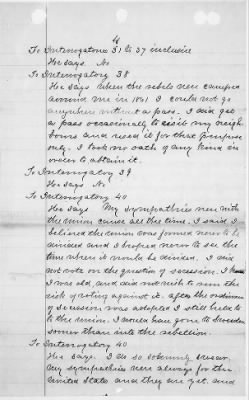 4
To Interrogatories 31 to 37 inclusive
He says. No
To Interrogatory 38
He says when the rebels were camped
around me in 1861 I could not go
anywhere without a pass. I did get
a pass occasionally to visit my neigh
bours and used it for that purpose
only. I took no oath of any kind in
order to obtain it.
To Interrogatory 39
He says No
To Interrogatory 40
He says My sympathies were with
the union cause all the time. I said I
believed the union was formed never to be
divided and I hoped never to see the
time when it would be divided. I did
not vote on the question of secession. I knew
I was old, and did not wish to run the
risk of voting against it. After the ordinance
of secession was adopted I still held to
to the union. I would have gone to
sooner than into the rebellion.
To Interrogatory 40
He says. I do so solemnly swear.
My sympathies were always for the
United States and they are yet. and